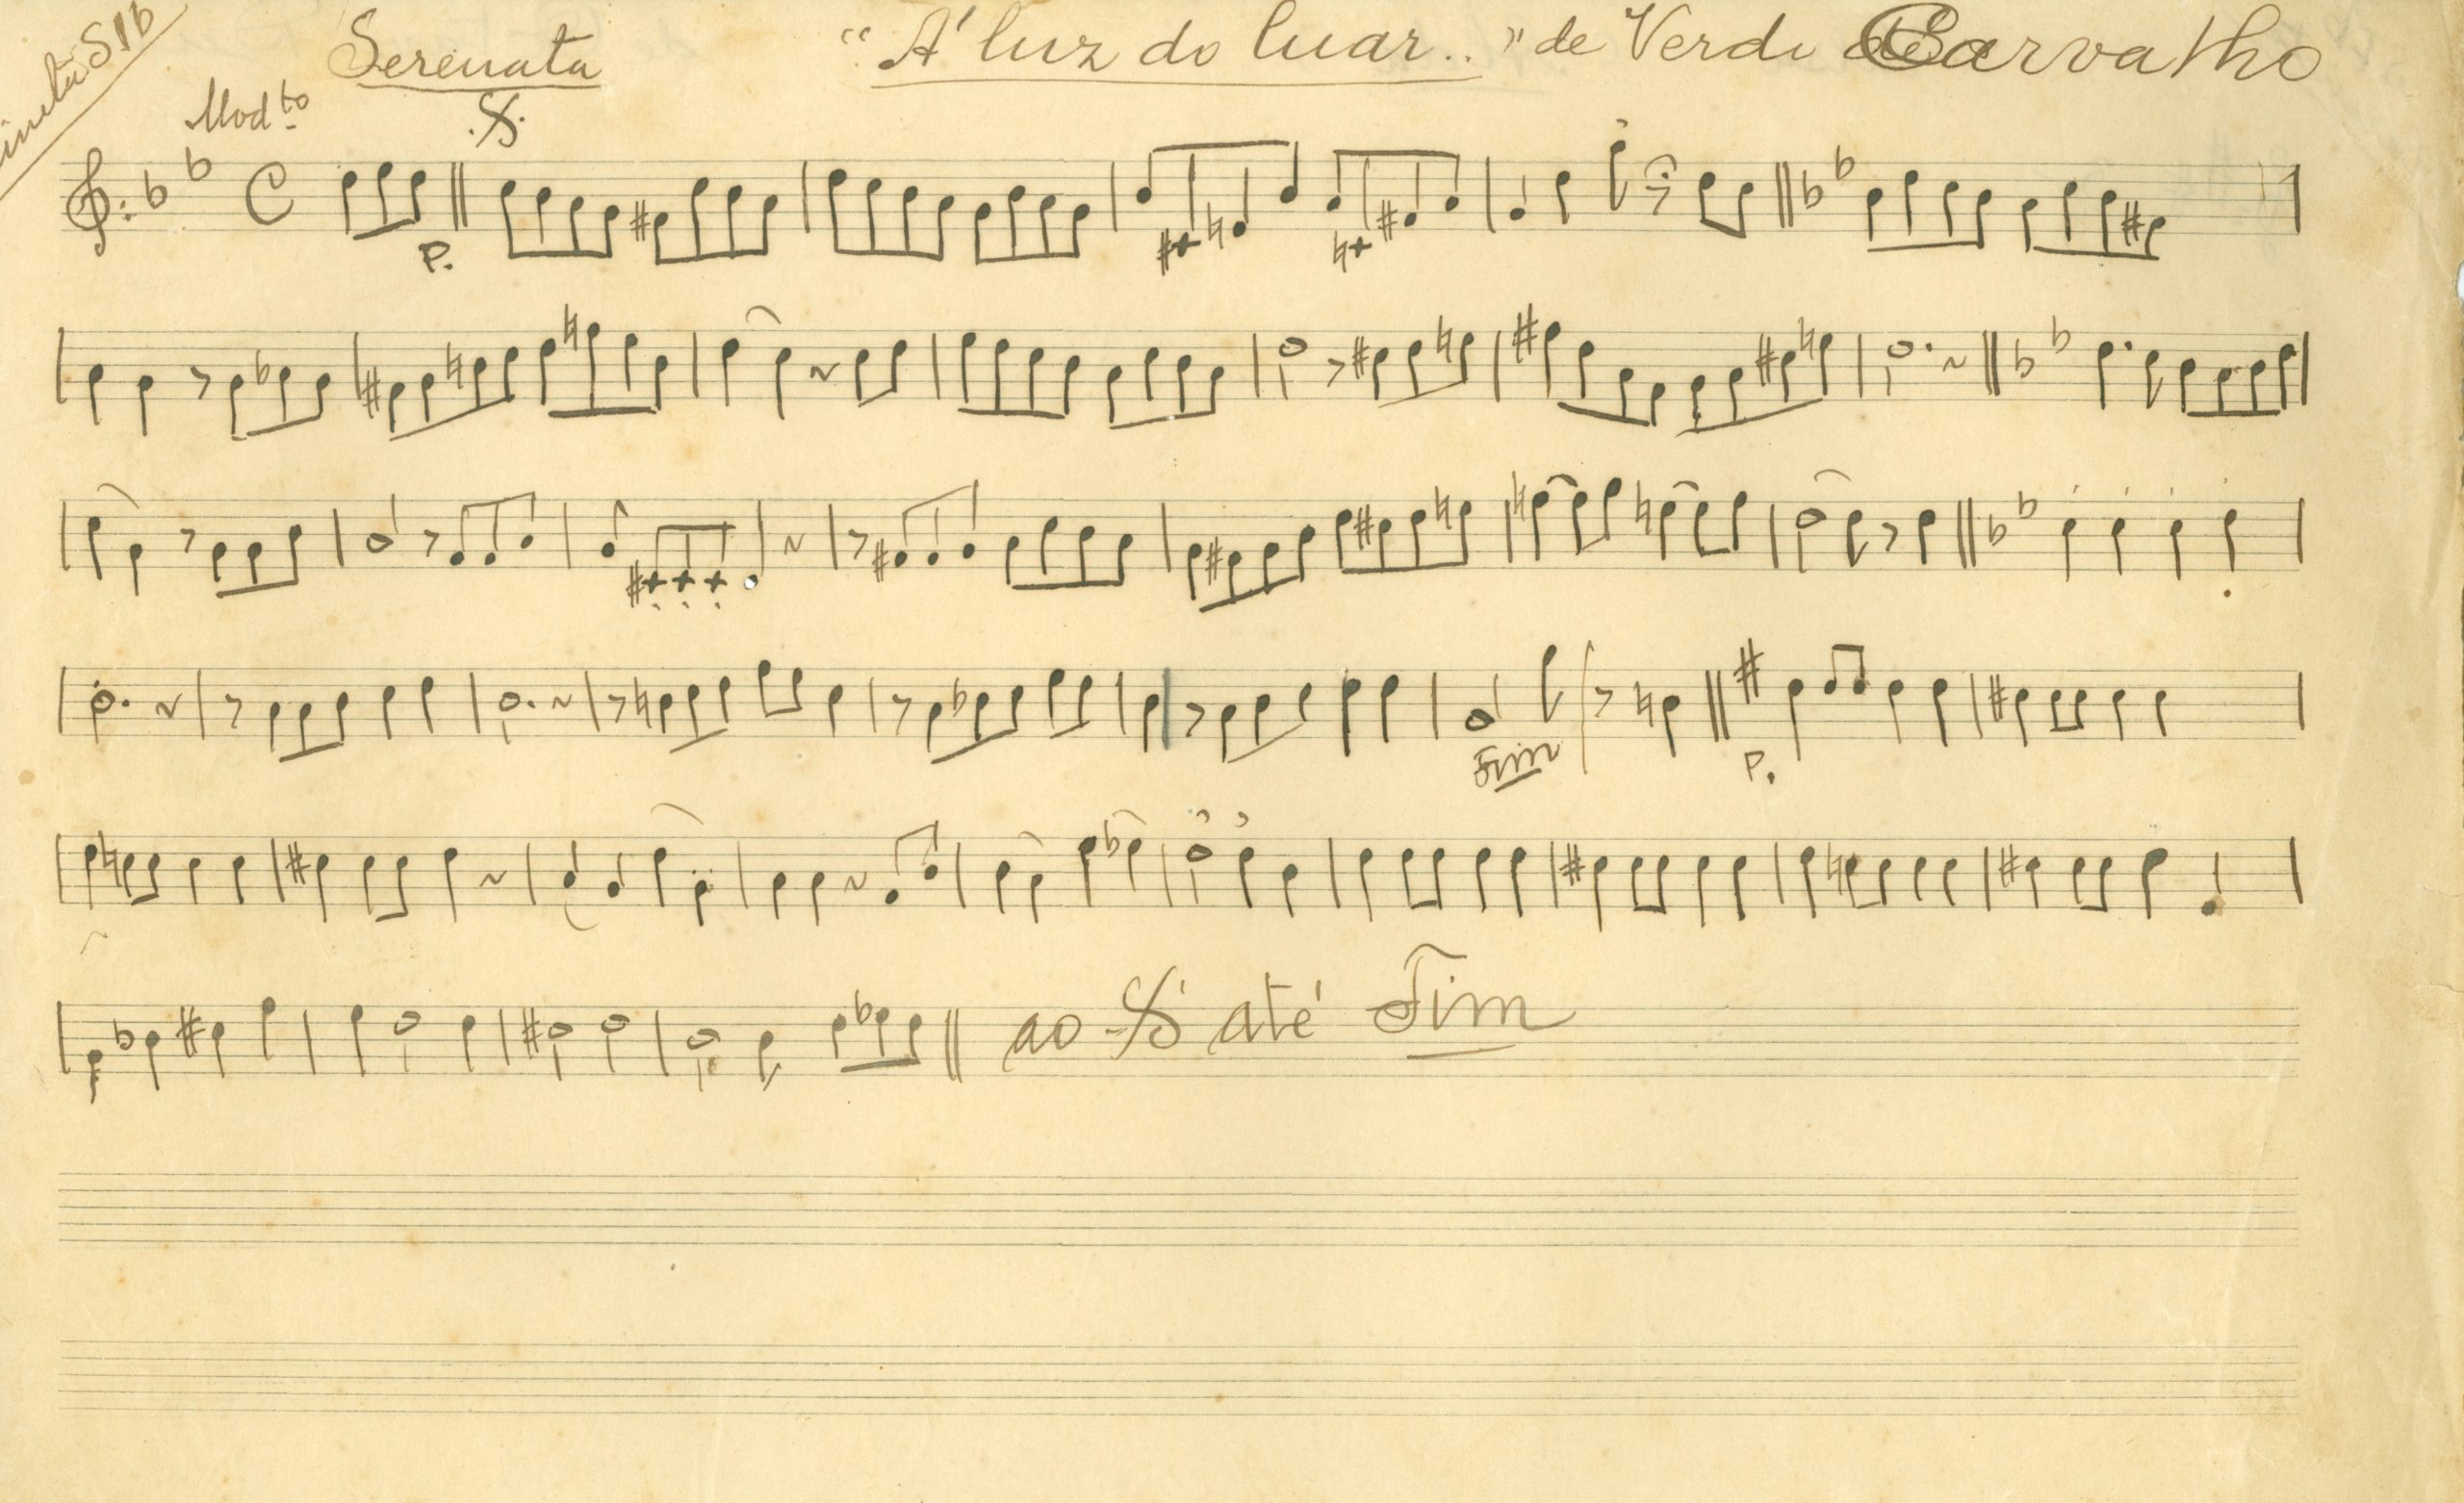 Sib
Serenata "A' luz do luar.." de Verdi Carvalho
Modto
P.
Fim
P.
ao até Fim